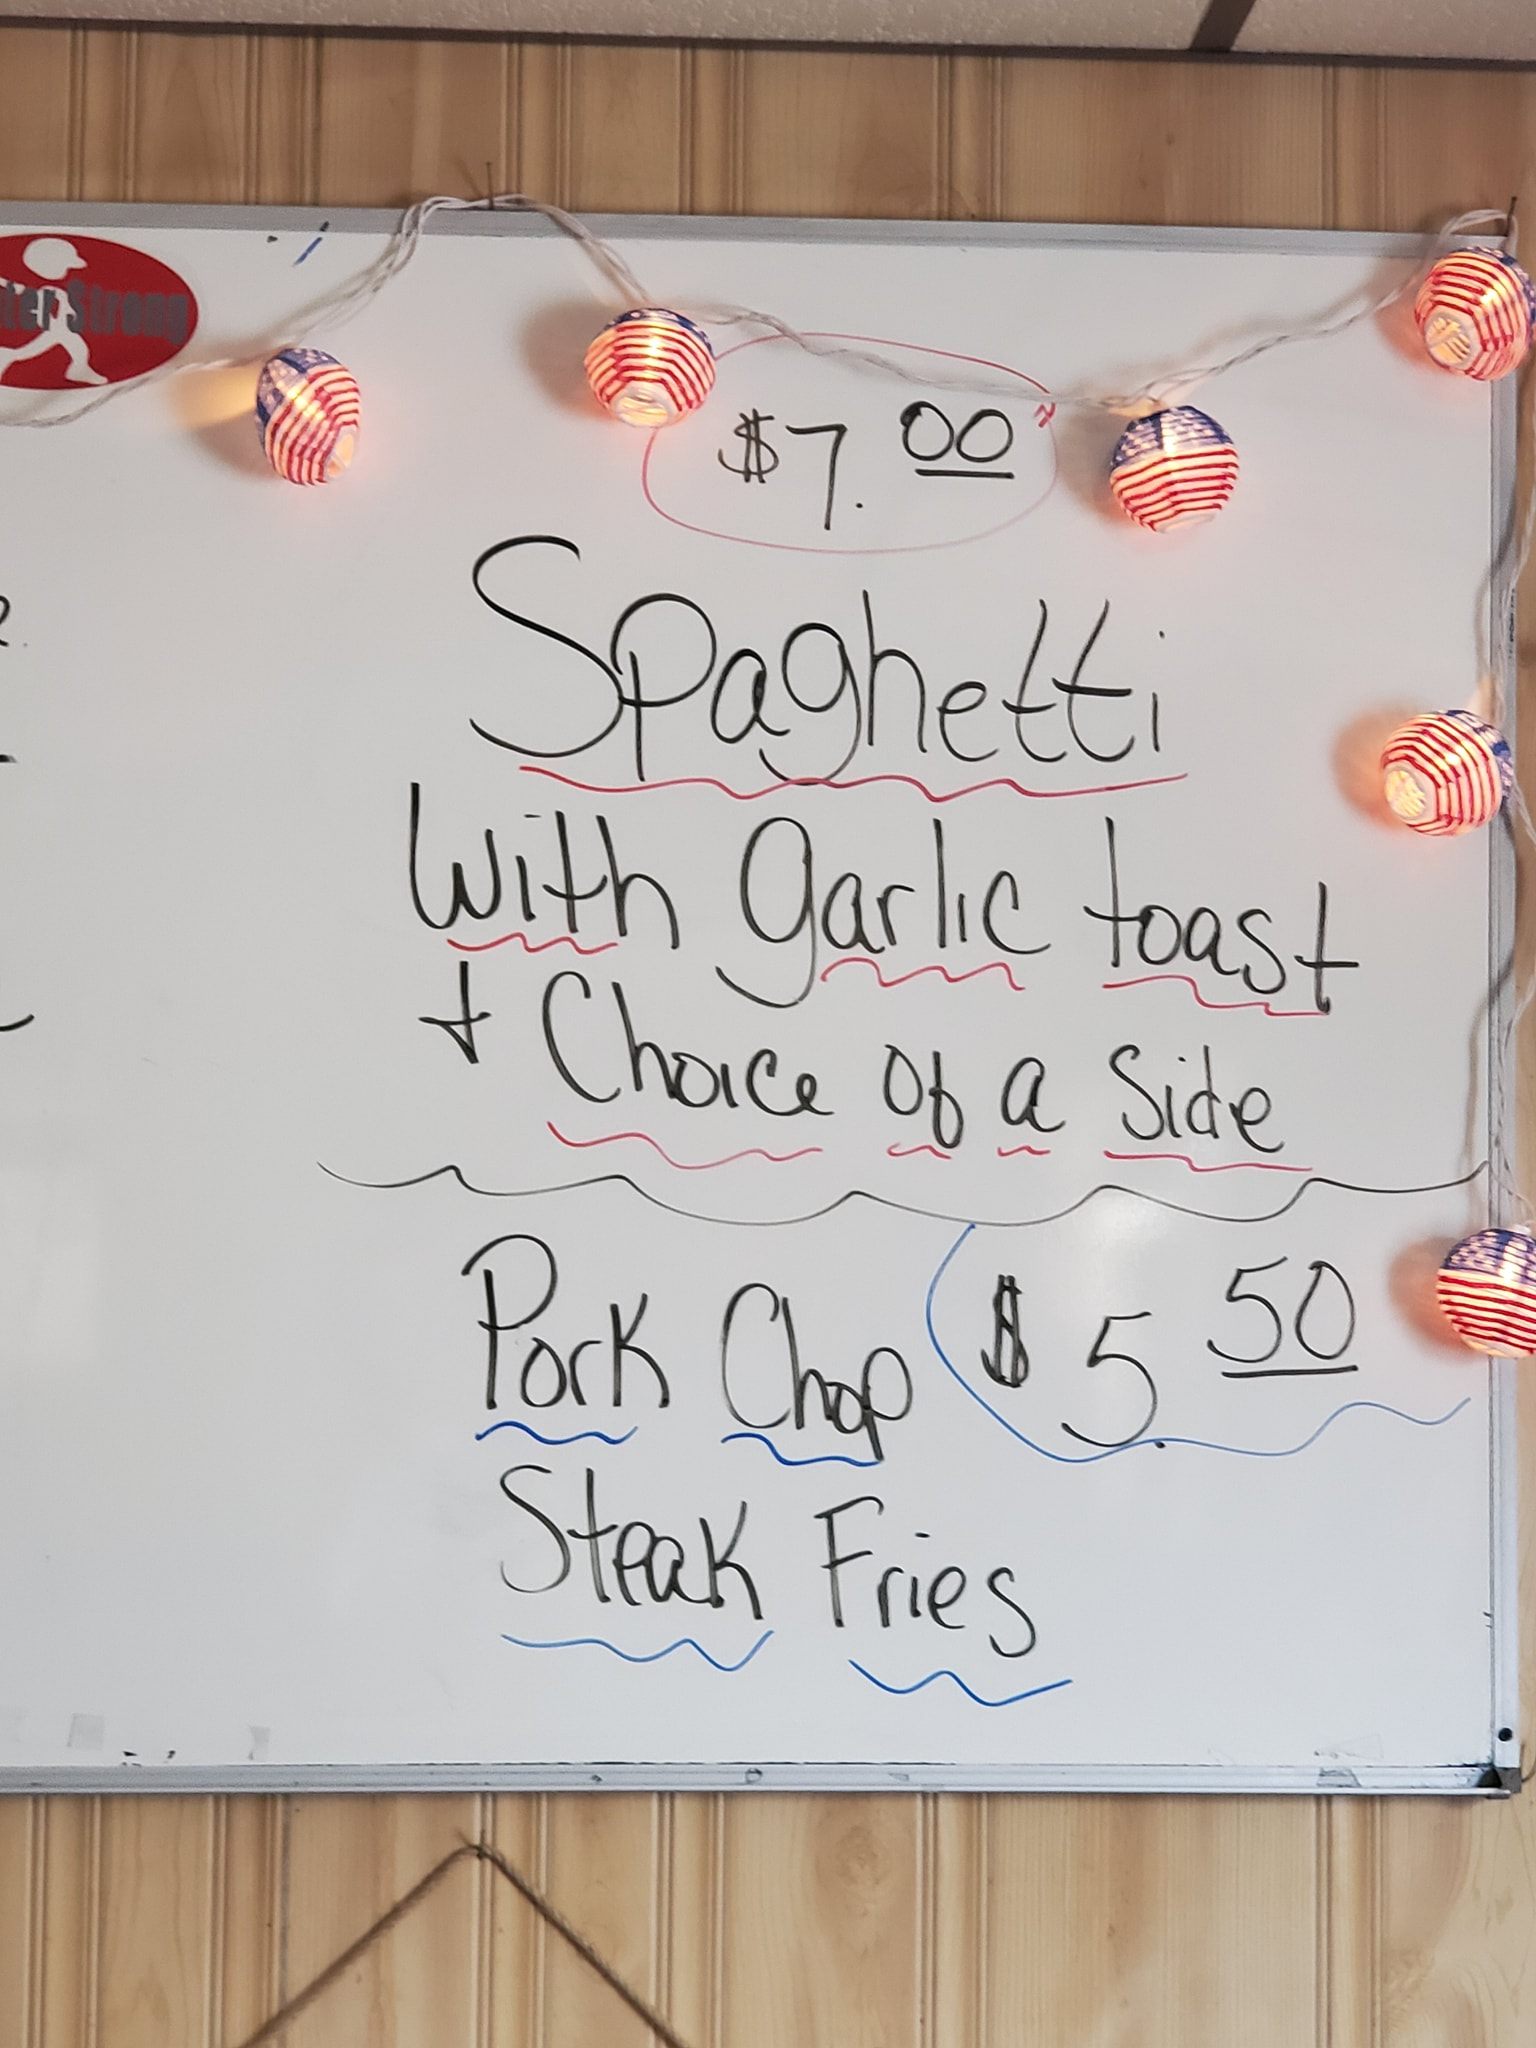 Strong
$7.00
Spaghetti
With garlic toast
+ Choice of a Side
Pork Chop $5.50
Steak Fries